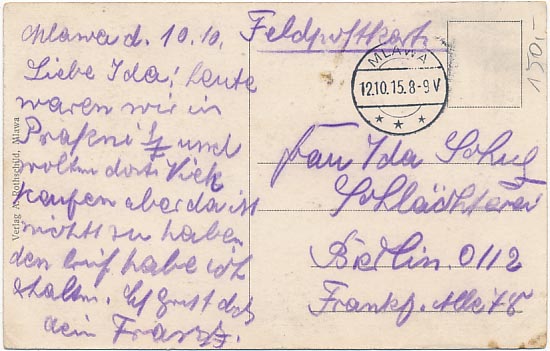 Mlawa d. 10.10.
Liebe Ida! heute
waren wir in
und
wolten dort Vieh
kaufen aber da ist
nichts zu haben
den brif habe ich
Es grüst dich
dein Franz.
Feldpostkarte
MLAWA
12.10.15.8-9V
* * *
150,-
Frau Ida Schulz
Schlächterei
Berlin. O 112
Frankf. Alle 48
Verlag A. Rothschild, Mlawa